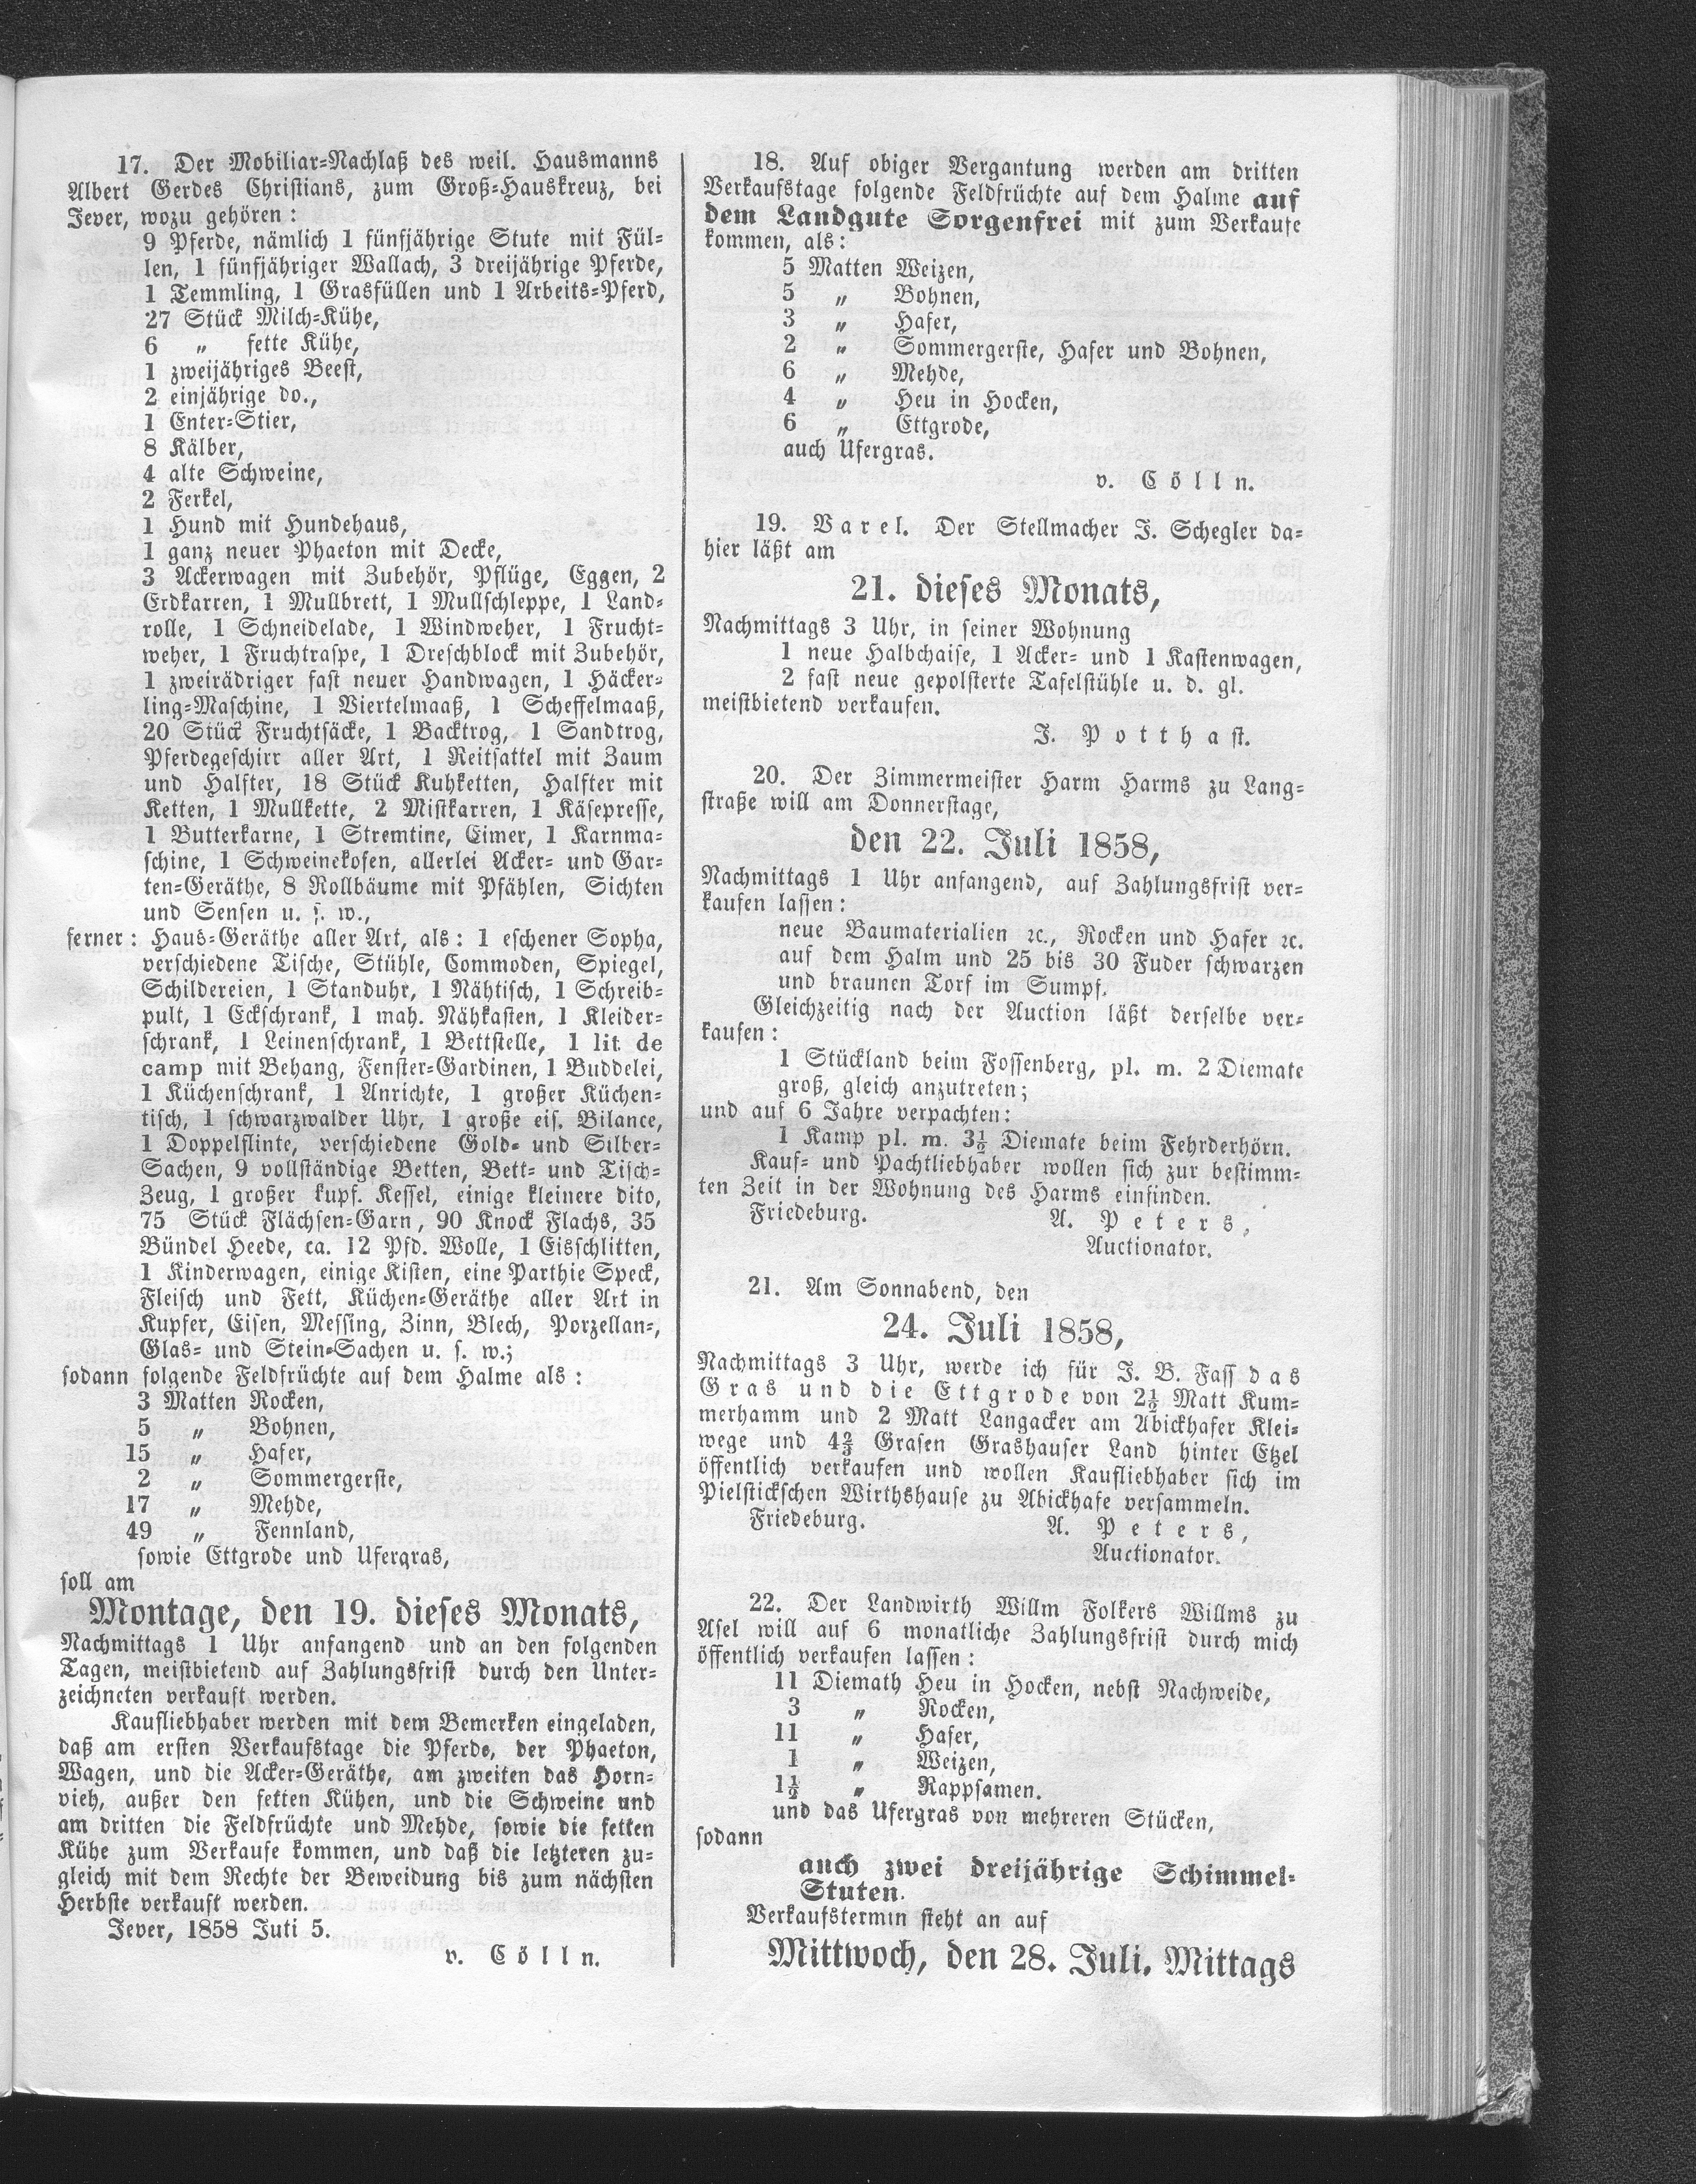 17. Der Mobiliar-Nachlaß des weil. Hausmanns
Albert Gerdes Christians, zum Groß-Hauskreuz, bei
Jever, wozu gehören:
9 Pferde, nämlich 1 fünfjährige Stute mit Fül-
len, 1 fünfjähriger Wallach, 3 dreijährige Pferde,
1 Temmling, 1 Grasfüllen und 1 Arbeits-Pferd,
27 Stück Milch-Kühe,
6 „ fette Kühe,
1 zweijähriges Beest,
2 einjährige do.,
1 Enter-Stier,
8 Kälber,
4 alte Schweine,
2 Ferkel,
1 Hund mit Hundehaus,
1 ganz neuer Phaeton mit Decke,
3 Ackerwagen mit Zubehör, Pflüge, Eggen, 2
Erdkarren, 1 Mullbrett, 1 Mullschleppe, 1 Land-
rolle, 1 Schneidelade, 1 Windweher, 1 Frucht-
weher, 1 Fruchtraspe, 1 Dreschblock mit Zubehör,
1 zweirädriger fast neuer Handwagen, 1 Häcker-
ling-Maschine, 1 Viertelmaaß, 1 Scheffelmaaß,
20 Stück Fruchtsäcke, 1 Backtrog, 1 Sandtrog,
Pferdegeschirr aller Art, 1 Reitsattel mit Zaum
und Halfter, 18 Stück Kuhketten, Halfter mit
Ketten, 1 Mullkette, 2 Mistkarren, 1 Käsepresse,
1 Butterkarne, 1 Stremtine, Eimer, 1 Karnma-
schine, 1 Schweinekofen, allerlei Acker- und Gar-
ten-Geräthe, 8 Rollbäume mit Pfählen, Sichten
und Sensen u. s. w.,
ferner: Haus-Geräthe aller Art, als: 1 eschener Sopha,
verschiedene Tische, Stühle, Commoden, Spiegel,
Schildereien, 1 Standuhr, 1 Nähtisch, 1 Schreib-
pult, 1 Eckschrank, 1 mah. Nähkasten, 1 Kleider-
schrank, 1 Leinenschrank, 1 Bettstelle, 1 lit de
camp mit Behang, Fenster-Gardinen, 1 Buddelei,
1 Küchenschrank, 1 Anrichte, 1 großer Küchen-
tisch, 1 schwarzwalder Uhr, 1 große eis. Bilance,
1 Doppelflinte, verschiedene Gold- und Silber-
Sachen, 9 vollständige Betten, Bett- und Tisch-
Zeug, 1 großer kupf. Kessel, einige kleinere dito,
75 Stück Flächsen-Garn, 90 Knock Flachs, 35
Bündel Heede, ca. 12 Pfd. Wolle, 1 Eisschlitten,
1 Kinderwagen, einige Kisten, eine Parthie Speck,
Fleisch und Fett, Küchen-Geräthe aller Art in
Kupfer, Eisen, Messing, Zinn, Blech, Porzellan-,
Glas- und Stein-Sachen u. s. w.;
sodann folgende Feldfrüchte auf dem Halme als:
3 Matten Rocken,
5 „ Bohnen,
15 „ Hafer,
2 „ Sommergerste,
17 „ Mehde,
49 „ Fennland,
sowie Ettgrode und Ufergras,
soll am
Montage, den 19. dieses Monats,
Nachmittags 1 Uhr anfangend und an den folgenden
Tagen, meistbietend auf Zahlungsfrist durch den Unter-
zeichneten verkauft werden.
Kaufliebhaber werden mit dem Bemerken eingeladen,
daß am ersten Verkaufstage die Pferde, der Phaeton,
Wagen, und die Acker-Geräthe, am zweiten das Horn-
vieh, außer den fetten Kühen, und die Schweine und
am dritten die Feldfrüchte und Mehde, sowie die fetten
Kühe zum Verkaufe kommen, und daß die letzteren zu-
gleich mit dem Rechte der Beweidung bis zum nächsten
Herbste verkauft werden.
Jever, 1858 Juti 5.
v. Cölln.
18. Auf obiger Vergantung werden am dritten
Verkaufstage folgende Feldfrüchte auf dem Halme auf
dem Landgute Sorgenfrei mit zum Verkaufe
kommen, als:
5 Matten Weizen,
5 „ Bohnen,
3 „ Hafer,
2 „ Sommergerste, Hafer und Bohnen,
6 „ Mehde,
4 „ Heu in Hocken,
6 „ Ettgrode,
auch Ufergras.
v. Cölln.
19. Varel. Der Stellmacher J. Schegler da-
hier läßt am
21. dieses Monats,
Nachmittags 3 Uhr, in seiner Wohnung
1 neue Halbchaise, 1 Acker- und 1 Kastenwagen,
2 fast neue gepolsterte Tafelstühle u. d. gl.
meistbietend verkaufen.
J. Potthast.
20. Der Zimmermeister Harm Harms zu Lang-
straße will am Donnerstage,
den 22. Juli 1858,
Nachmittags 1 Uhr anfangend, auf Zahlungsfrist ver-
kaufen lassen:
neue Baumaterialien ꝛc., Rocken und Hafer ꝛc.
auf dem Halm und 25 bis 30 Fuder schwarzen
und braunen Torf im Sumpf.
Gleichzeitig nach der Auction läßt derselbe ver-
kaufen:
1 Stückland beim Fossenberg, pl. m. 2 Diemate
groß, gleich anzutreten;
und auf 6 Jahre verpachten:
1 Kamp pl. m. 3½ Diemate beim Fehrderhörn.
Kauf- und Pachtliebhaber wollen sich zur bestimm-
ten Zeit in der Wohnung des Harms einfinden.
Friedeburg. A. Peters,
Auctionator.
21. Am Sonnabend, den
24. Juli 1858,
Nachmittags 3 Uhr, werde ich für J. B. Fass das
Gras und die Ettgrode von 2½ Matt Kum-
merhamm und 2 Matt Langacker am Abickhafer Klei-
wege und 4⅔ Grasen Grashauser Land hinter Etzel
öffentlich verkaufen und wollen Kaufliebhaber sich im
Pielstickschen Wirthshause zu Abickhafe versammeln.
Friedeburg. A. Peters,
Auctionator.
22. Der Landwirth Willm Folkers Willms zu
Asel will auf 6 monatliche Zahlungsfrist durch mich
öffentlich verkaufen lassen:
11 Diemath Heu in Hocken, nebst Nachweide,
3 „ Rocken,
11 „ Hafer,
1 „ Weizen,
1½ „ Rappsamen.
und das Ufergras von mehreren Stücken,
sodann
auch zwei dreijährige Schimmel-
Stuten.
Verkaufstermin steht an auf
Mittwoch, den 28. Juli, Mittags